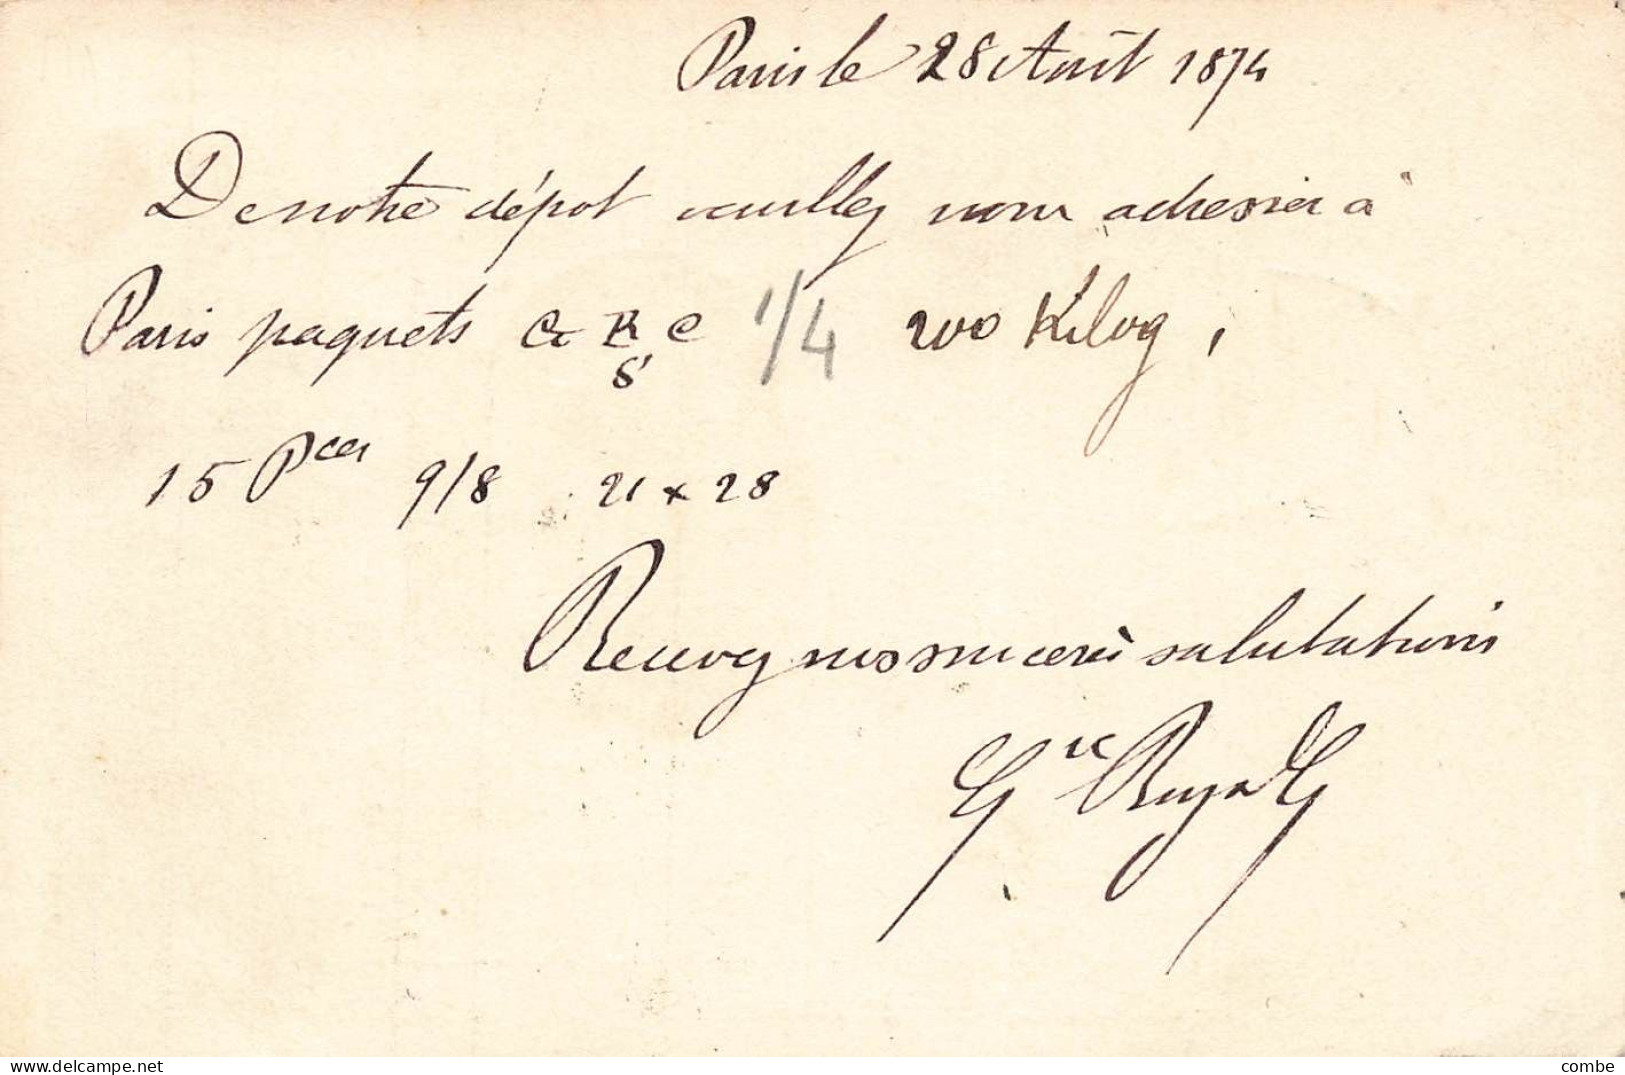 Paris le 28 Août 1874
De notre dépot veuillez nous adresser à
Paris paquets C R C 1/4 200 Kilog,
S
15 Pces 9/8 21 x 28
Recevez nos sincères salutations
delcampe.net
combe